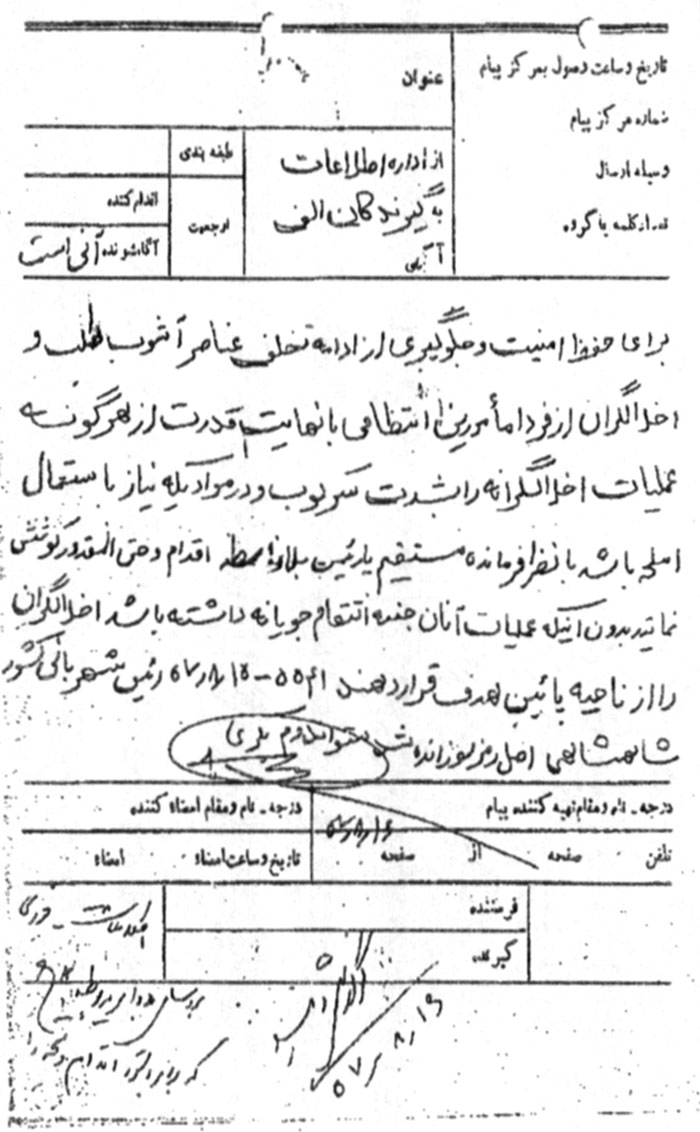 تاریخ و ساعت وصول بمرکز پیام
عنوان
شماره مرکز پیام
از اداره اطلاعات
طبقه بندی
وسیله ارسال
به گیرندگان الف
ارجحیت
اقدام کننده
تعداد کلمه یا گروه
آگاه شونده آنی است
برای حفظ امنیت و جلوگیری از ادامه تخلف عناصر آشوب طلب و
اخلالگران از فردا مأمورین انتظامی با نهایت قدرت از هرگونه
عملیات اخلالگرانه را شدت سرکوب و در مواردیکه نیاز باستعمال
اسلحه باشد با نظر فرمانده مستقیم یا رئیس بلاواسطه اقدام و حتی المقدور کوشش
نمایند بدون آنکه عملیات آنان جنبه انتقام جویانه داشته باشد اخلالگران
را از ناحیه پائین هدف قرار دهند ۵۵۴۱ - ۵۷/۸/۱۵ رئیس شهربانی کشور
شاهنشاهی اصل رمز سوزانده شد
درجه - نام و مقام تهیه کننده پیام
درجه - نام و مقام امضاء کننده
۵۷/۸/۱۶
تلفن
صفحه
از
صفحه
تاریخ و ساعت امضاء
امضاء
فرستنده
گیرنده
۵۷/۸/۱۶